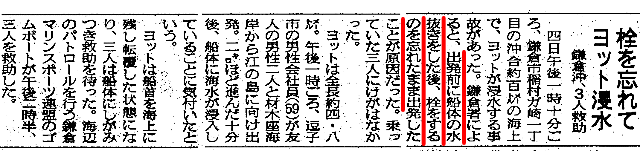 栓を忘れて
ヨット浸水
鎌倉沖 3人救助
四日午後一時十分ご
ろ、鎌倉市稲村ガ崎一丁
目の沖合約百㍍の海上
で、ヨットが浸水する事
故があった。鎌倉署によ
ると、出発前に船体の水
抜きをした後、栓をする
のを忘れたまま出発した
ことが原因だった。乗っ
ていた三人にけがはなか
った。
ヨットは全長約四・八
㍍。午後一時ごろ、逗子
市の男性会社員(59)が友
人の男性二人と材木座海
岸から江の島に向け出
発。二㌔ほど進んだ十分
後、船体に海水が浸入し
ていることに気付いたと
いう。
ヨットは船首を海上に
残し転覆した状態にな
り、三人は船体にしがみ
つき救助を待った。海辺
のパトロールを行う鎌倉
マリンスポーツ連盟のゴ
ムボートが午後二時半、
三人を救助した。